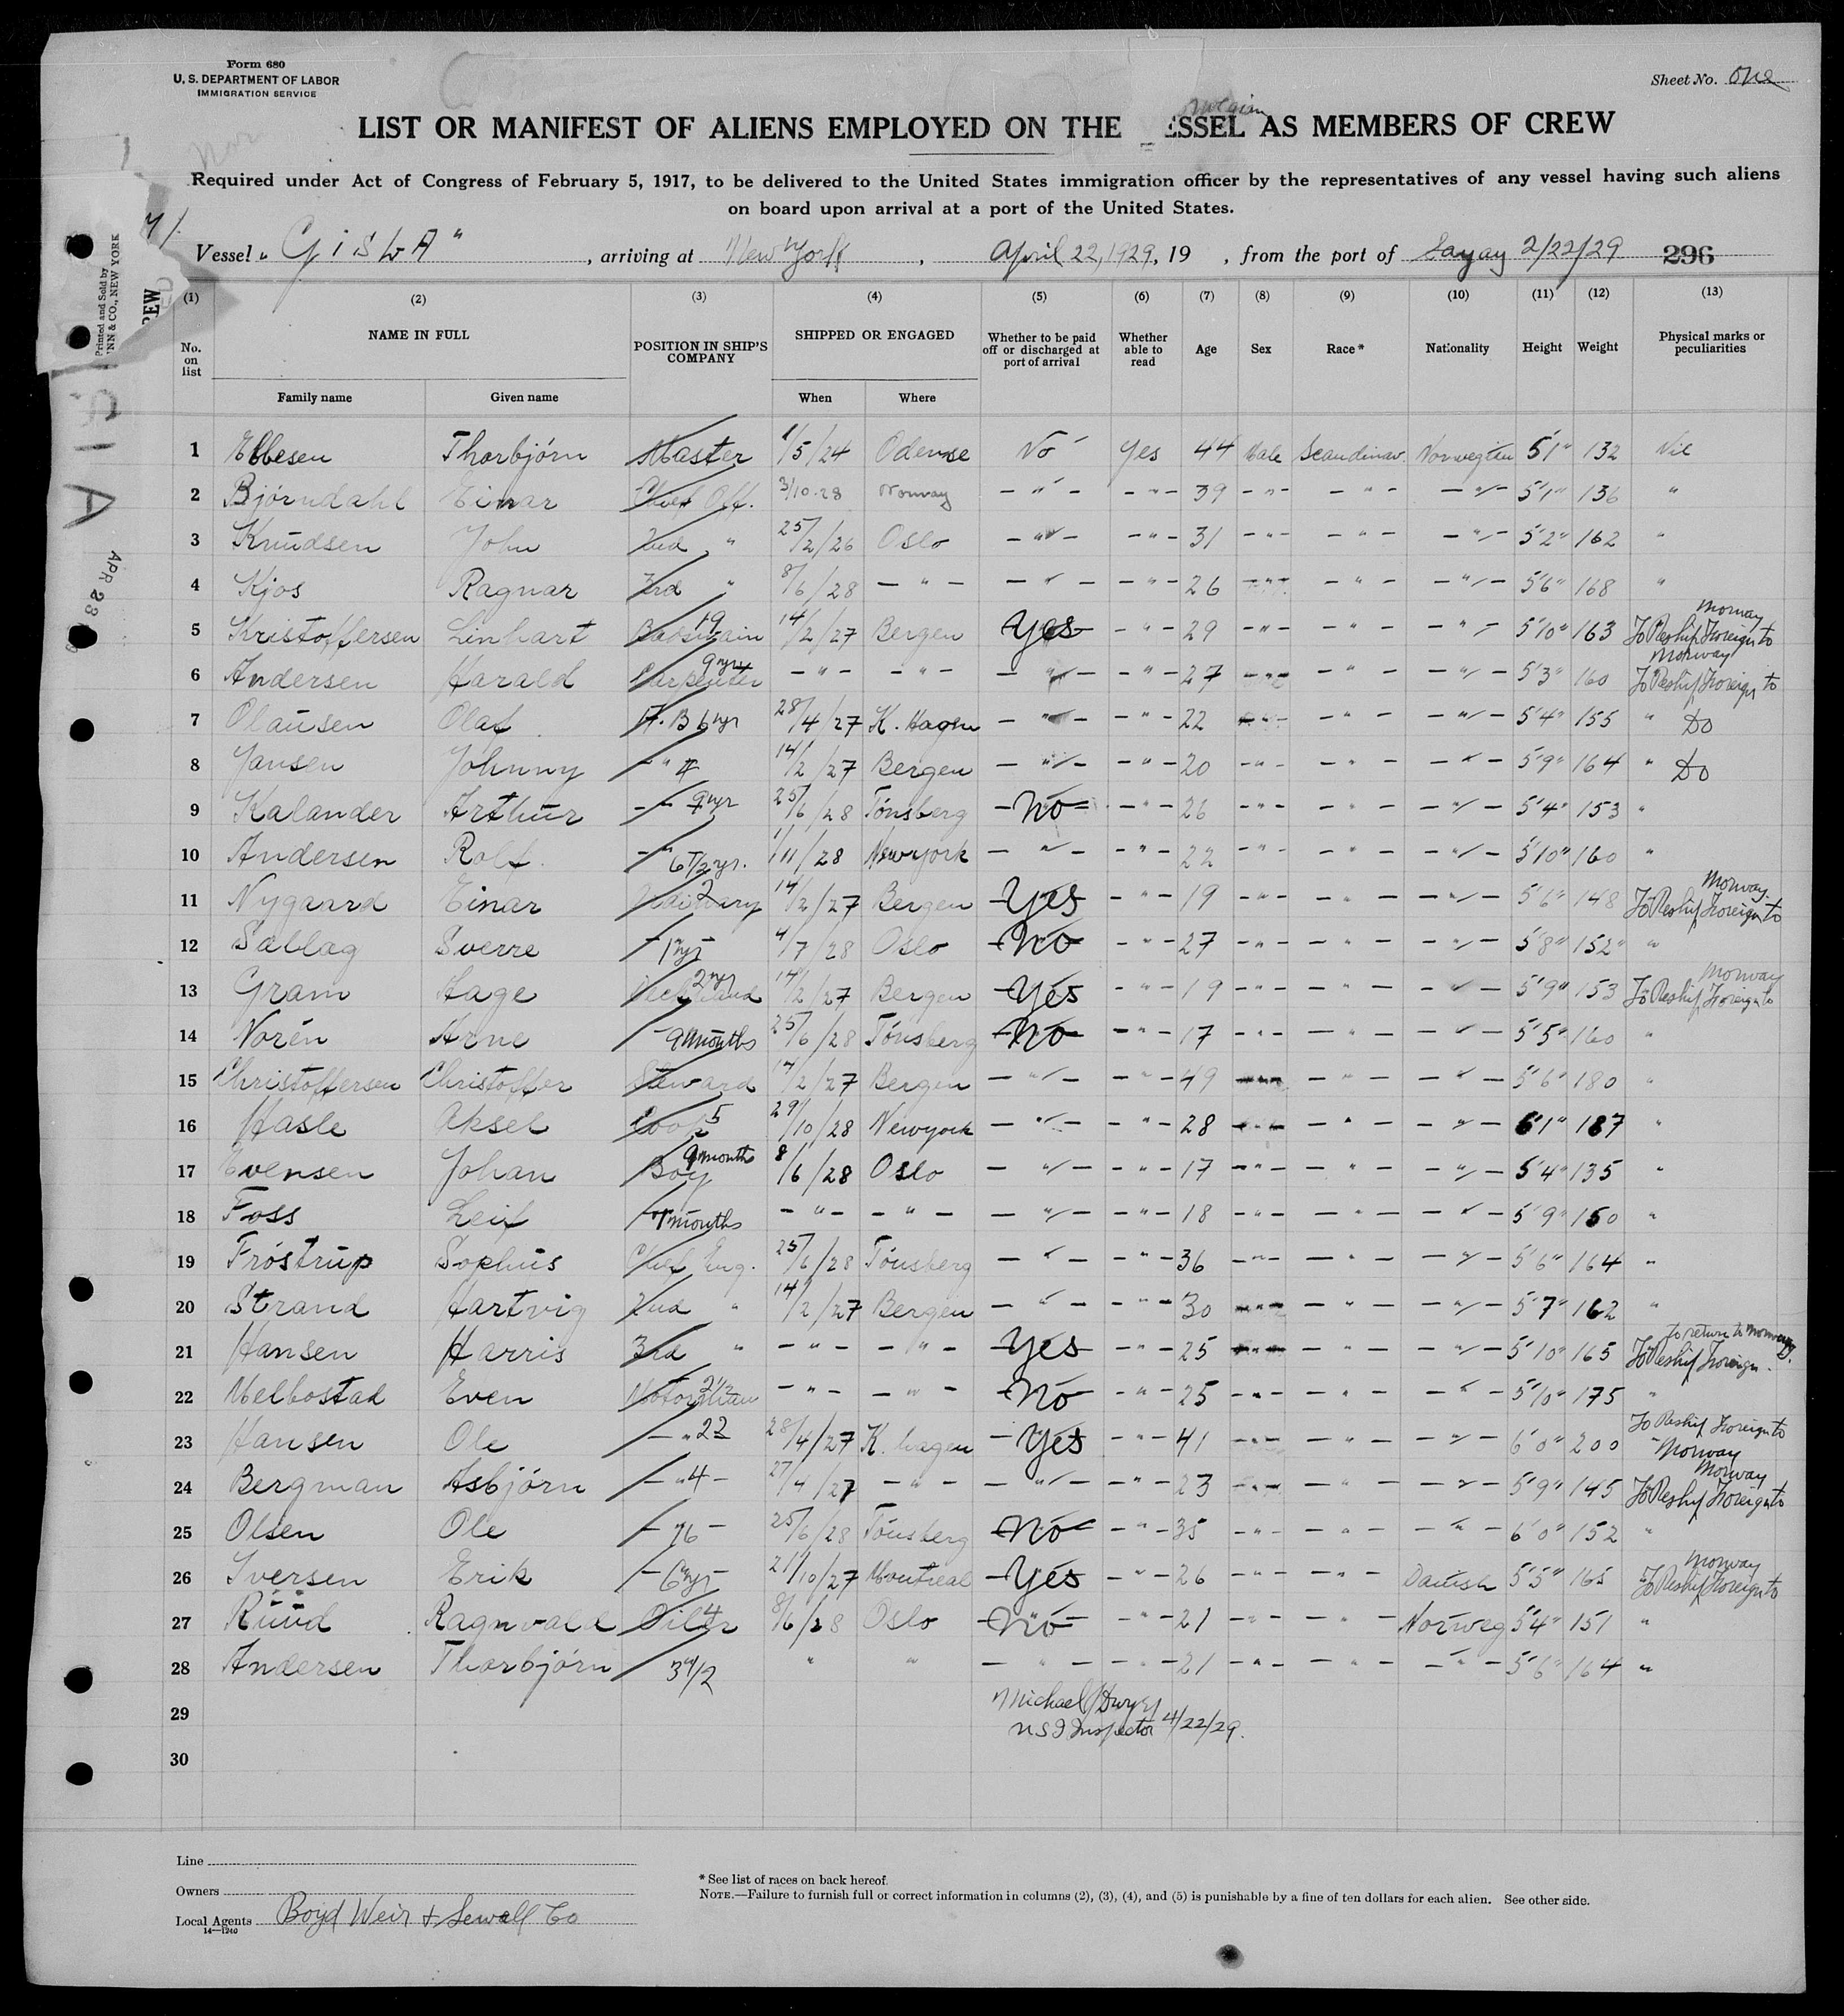 Form 680
U. S. DEPARTMENT OF LABOR
IMMIGRATION SERVICE
Sheet No. One
LIST OR MANIFEST OF ALIENS EMPLOYED ON THE ESSEL AS MEMBERS OF CREW
Required under Act of Congress of February 5, 1917, to be delivered to the United States immigration officer by the representatives of any vessel having such aliens
on board upon arrival at a port of the United States.
Vessel " GISLA ", arriving at New York, April 22, 1929, 19 , from the port of 2/22/29 296
Printed and Sold by
NN & CO., NEW YORK
REW
APR 23
(1) (2) (3) (4) (5) (6) (7) (8) (9) (10) (11) (12) (13)
No. on list NAME IN FULL POSITION IN SHIP'S COMPANY SHIPPED OR ENGAGED Whether to be paid off or discharged at port of arrival Whether able to read Age Sex Race* Nationality Height Weight Physical marks or peculiarities
Family name Given name When Where
1 Ebbesen Thorbjórn Master 1/5/24 Odense No Yes 44 Male Scandinav. Norwegian 5'1" 132 Nil
2 Bjórndahl Einar Chief Off. 3/10-28 Norway - " - - " - 39 - " - - " - - " - 5'1" 136 "
3 Knudsen John 2nd " 25/2/26 Oslo - " - - " - 31 - " - - " - - " - 5'2" 162 "
4 Kjos Ragnar 3rd " 8/6/28 - " - - " - - " - 26 - " - - " - - " - 5'6" 168 "
5 Kristoffersen Linhart Boatswain 19 14/2/27 Bergen Yes - " - 29 - " - - " - - " - 5'10" 163 To Reship Foreign to Norway
6 Andersen Harald Carpenter 9 yrs - " - - " - - " - - " - 27 - " - - " - - " - 5'3" 160 To Reship Foreign to Norway
7 Olausen Olaf A. B 6 yr 28/4/27 K. Hagen - " - - " - 22 - " - - " - - " - 5'4" 155 " Do
8 Jansen Johnny - " 4 14/2/27 Bergen - " - - " - 20 - " - - " - - " - 5'9" 164 " Do
9 Kalander Arthur - 9 yr 25/6/28 Tónsberg No - " - 26 - " - - " - - " - 5'4" 153 "
10 Andersen Rolf - 6 1/2 yr. 1/11/28 Newyork - " - - " - 22 - " - - " - - " - 5'10" 160 "
11 Nygaard Einar Ordinary 2 14/2/27 Bergen Yes - " - 19 - " - - " - - " - 5'6" 148 To Reship Foreign to Norway
12 Sallag Sverre - 1 yr - 4/7/28 Oslo No - " - 27 - " - - " - - " - 5'8" 152 "
13 Gram Aage 2 yr 14/2/27 Bergen Yes - " - 19 - " - - " - - " - 5'9" 153 To Reship Foreign to Norway
14 Norén Arne 9 months 25/6/28 Tónsberg No - " - 17 - " - - " - - " - 5'5" 160 "
15 Christoffersen Christoffer Steward 14/2/27 Bergen - " - - " - 49 - " - - " - - " - 5'6" 180 "
16 Hasle Aksel Cook 5 29/10/28 Newyork - " - - " - 28 - " - - " - - " - 6'1" 187 "
17 Evensen Johan Boy 9 months 8/6/28 Oslo - " - - " - 17 - " - - " - - " - 5'4" 135 "
18 Foss Leif 7 months - " - - " - - " - - " - 18 - " - - " - - " - 5'9" 150 "
19 Fróstrup Sophus Chief Eng. 25/6/28 Tónsberg - " - - " - 36 - " - - " - - " - 5'6" 164 "
20 Strand Hartvig 2nd " 14/2/27 Bergen - " - - " - 30 - " - - " - - " - 5'7" 162 "
21 Hansen Harris 3rd " - " - - " - Yes - " - 25 - " - - " - - " - 5'10" 165 To Reship Foreign. to return to Norway.
22 Melbostad Even Motorman 2 1/2 - " - - " - No - " - 25 - " - - " - - " - 5'10" 175 "
23 Hansen Ole - " 22 28/4/27 K. hagen Yes - " - 41 - " - - " - - " - 6'0" 200 To Reship Foreign to Norway
24 Bergman Asbjórn - " 4 - 27/4/27 - " - - " - - " - 23 - " - - " - - " - 5'9" 145 To Reship Foreign to Norway
25 Olsen Ole - 16 - 25/6/28 Tónsberg No - " - 35 - " - - " - - " - 6'0" 152 "
26 Iversen Erik - 6 yr - 21/10/27 Montreal Yes - " - 26 - " - - " - Danish 5'5" 165 To Reship Foreign to Norway
27 Ruud Ragnvald Oiler 4 8/6/28 Oslo No - " - 21 - " - - " - Norweg 5'4" 151 "
28 Andersen Thorbjórn 3 1/2 " " - " - - " - 21 - " - - " - - " - 5'6" 164 "
29 Michael Dwyer
U S I Inspector 4/22/29.
30
Line
Owners
Local Agents Boyd Weir & Sewall Co
14-1240
* See list of races on back hereof.
NOTE.—Failure to furnish full or correct information in columns (2), (3), (4), and (5) is punishable by a fine of ten dollars for each alien. See other side.